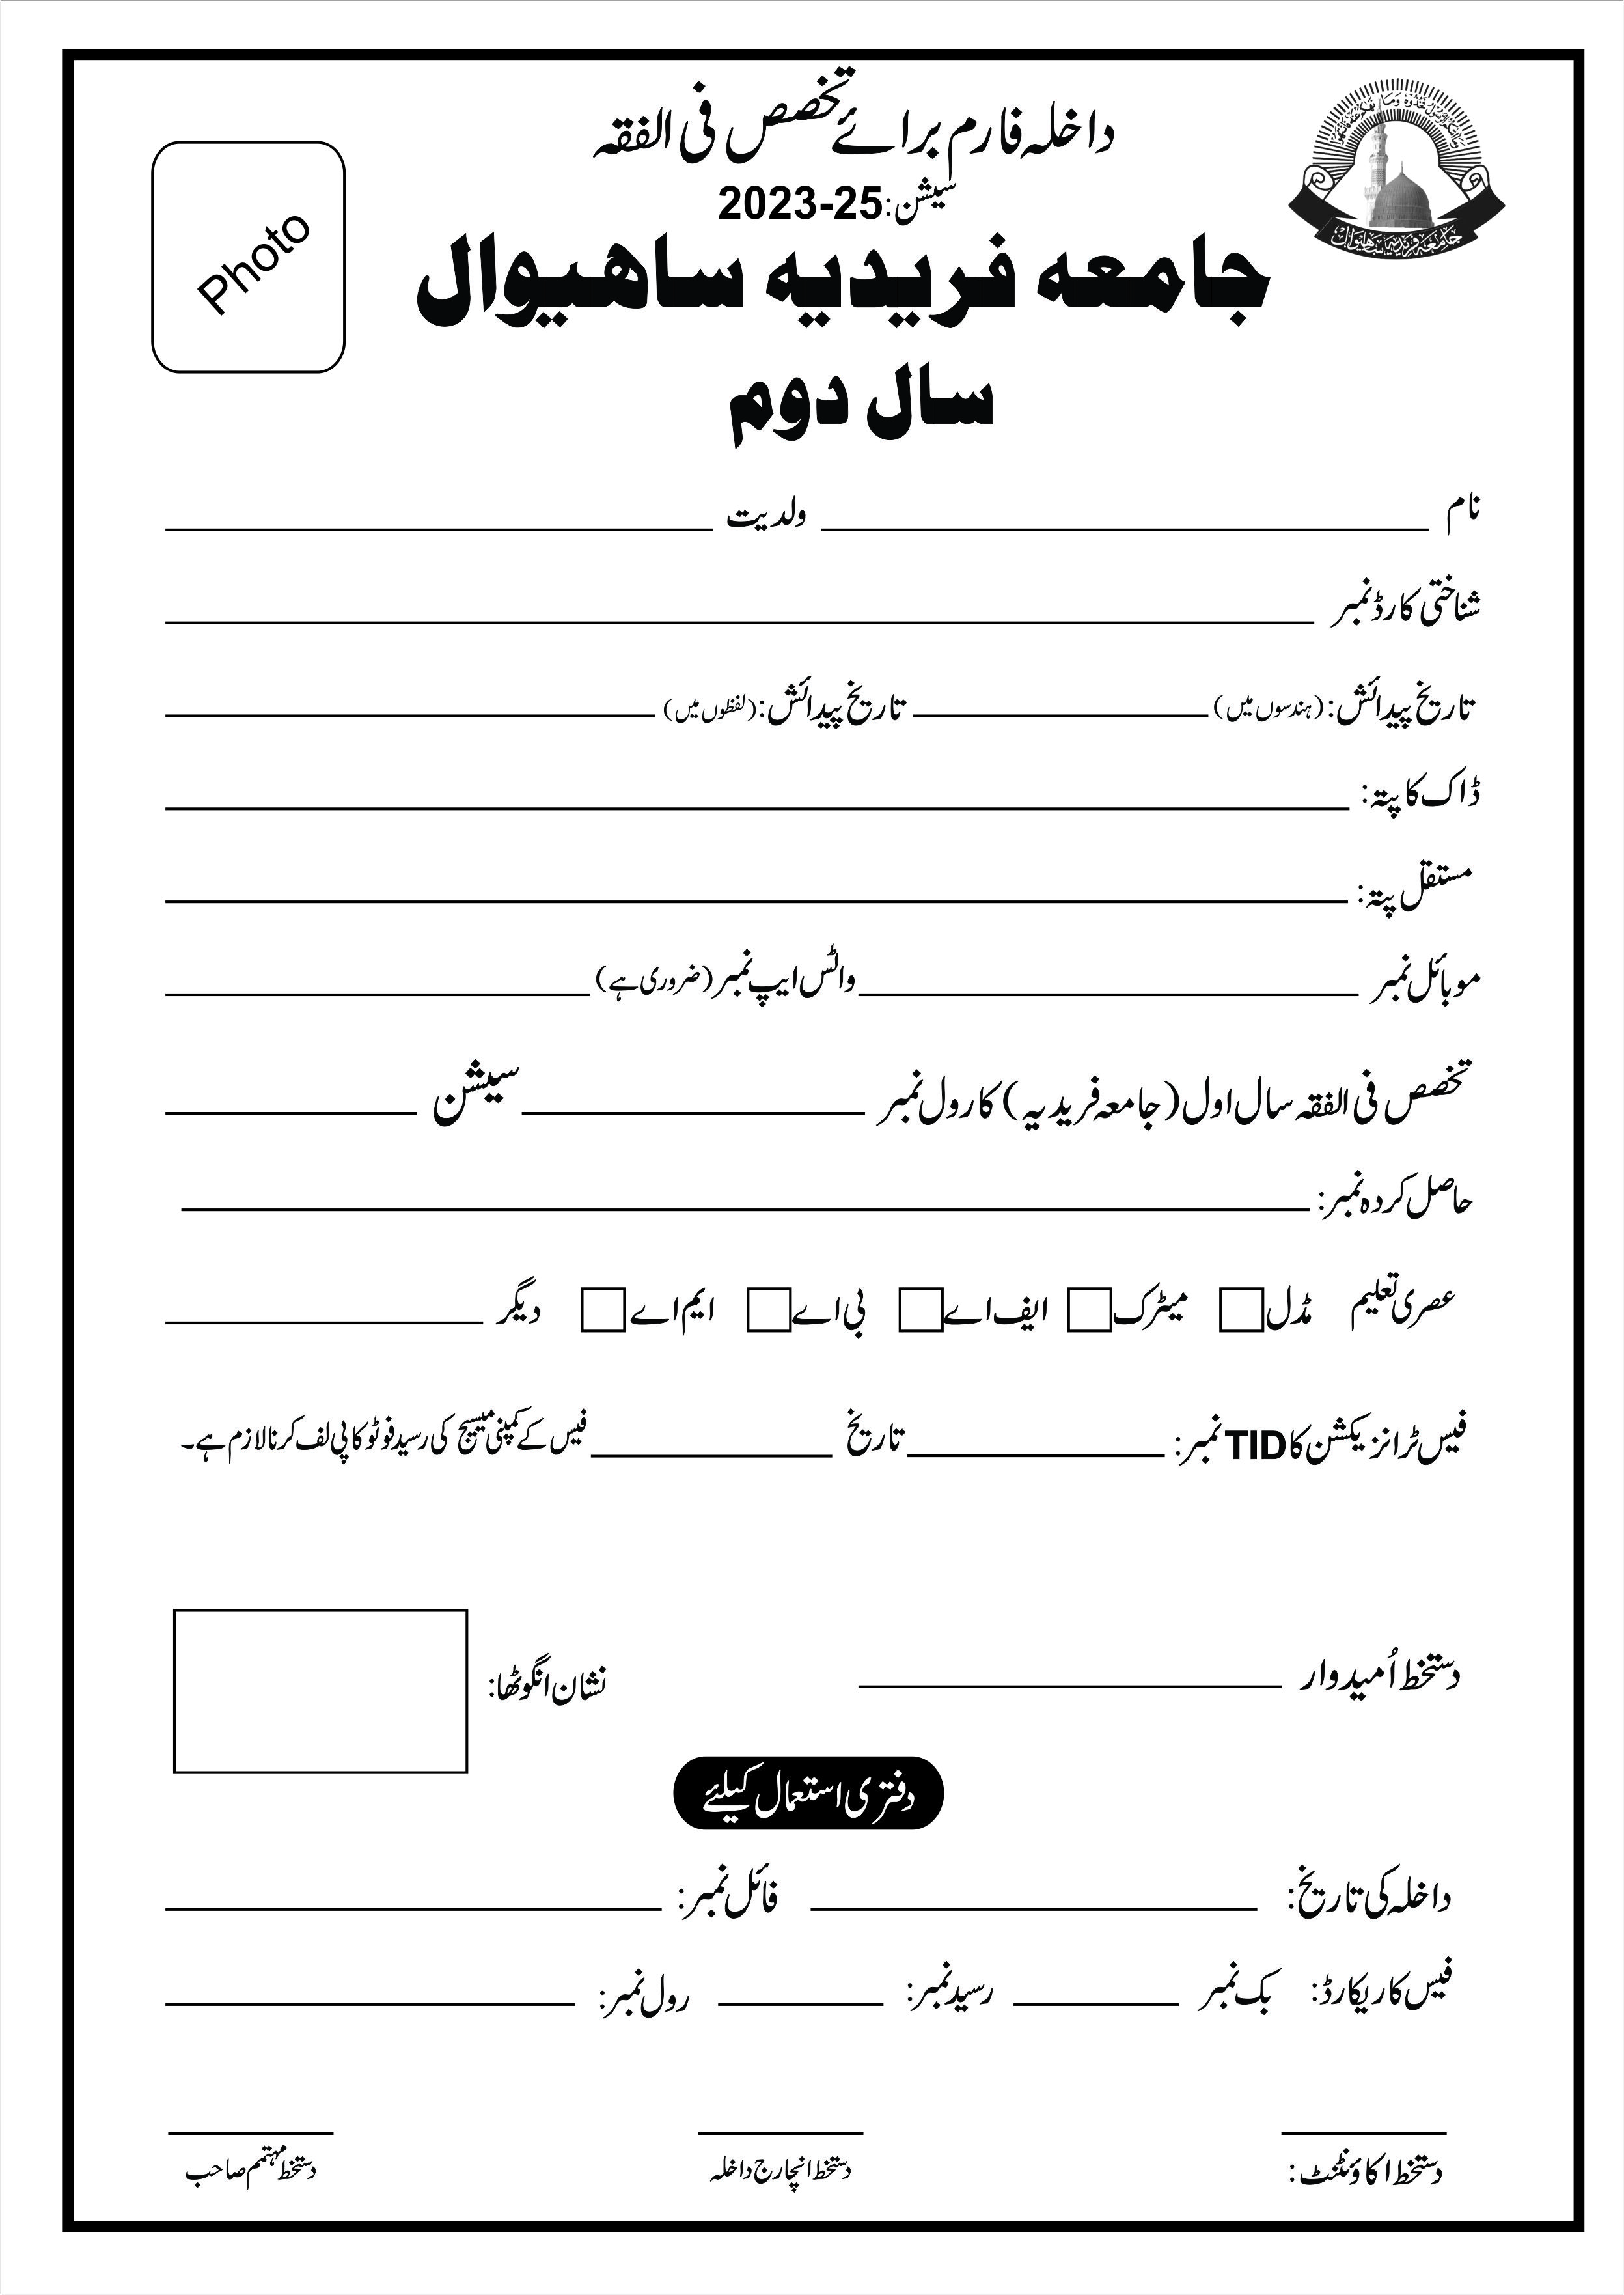 داخلہ فارم برائے تخصص فی الفقہ
سیشن: 2023-25
جامعہ فریدیہ ساھیوال
جامعہ فریدیہ ساہیوال
Photo
سال دوم
نام ولدیت
شناختی کارڈ نمبر
تاریخ پیدائش: (ہندسوں میں) تاریخ پیدائش: (لفظوں میں)
ڈاک کا پتہ:
مستقل پتہ:
موبائل نمبر واٹس ایپ نمبر (ضروری ہے)
تخصص فی الفقہ سال اول (جامعہ فریدیہ) کا رول نمبر سیشن
حاصل کردہ نمبر:
عصری تعلیم مڈل میٹرک ایف اے بی اے ایم اے دیگر
فیس ٹرانزیکشن کا TID نمبر: تاریخ فیس کے کمپنی میسیج کی رسید فوٹو کاپی لف کرنا لازم ہے۔
دستخط اُمیدوار نشان انگوٹھا:
دفتری استعمال کیلئے
داخلہ کی تاریخ: فائل نمبر:
فیس کا ریکارڈ: بک نمبر رسید نمبر: رول نمبر:
دستخط اکاؤنٹنٹ: دستخط انچارج داخلہ دستخط مہتمم صاحب